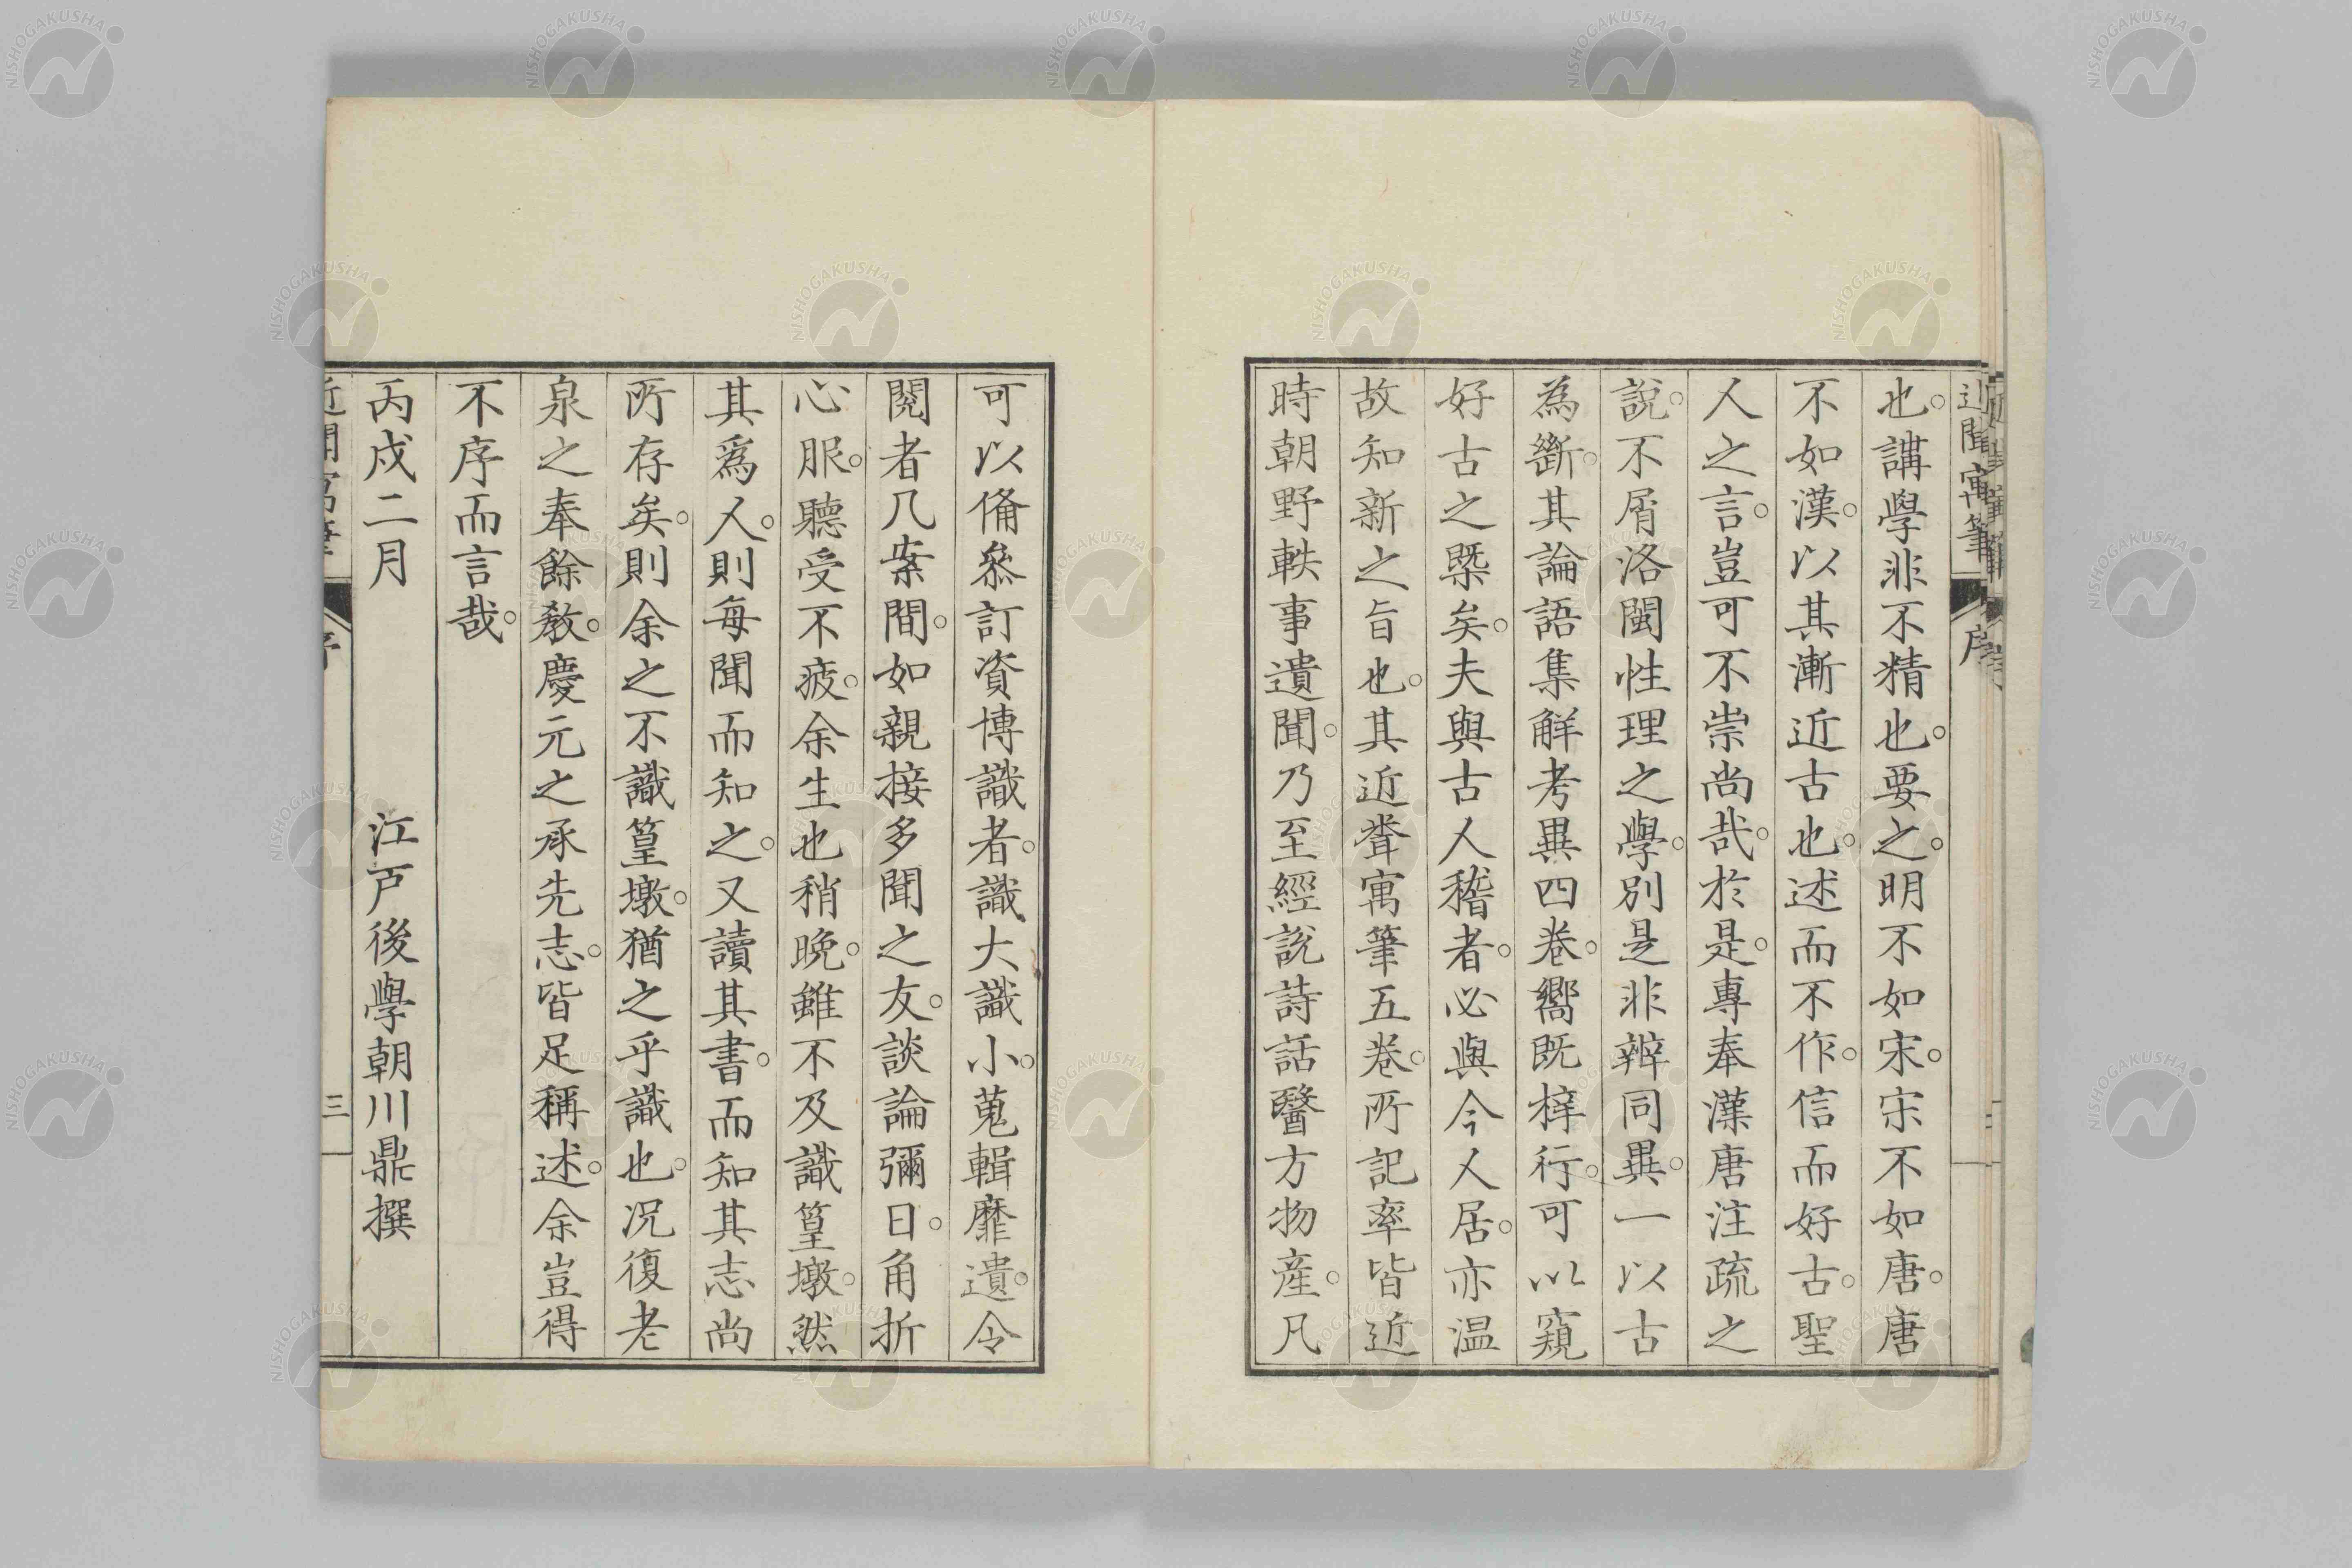 近聞寓筆 序
也。講學非不精也。要之。明不如宋。宋不如唐。唐
不如漢。以其漸近古也。述而不作。信而好古。聖
人之言。豈可不崇尚哉。於是。專奉漢唐注疏之
說。不屑洛閩性理之學。別是非辨同異。一以古
為斷。其論語集解考異四卷。嚮既梓行。可以窺
好古之槩矣。夫與古人稽者。必與今人居。亦温
故知新之旨也。其近聞寓筆五卷。所記率皆近
時朝野軼事遺聞。乃至經說詩話醫方物産。凡
可以俻叅訂資博識者。識大識小。蒐輯靡遺。令
閱者几案間。如親接多聞之友。談論彌日。角折
心服。聽受不疲。余生也稍晚。雖不及識篁墩。然
其爲人。則每聞而知之。又讀其書。而知其志尚
所存矣。則余之不識篁墩。猶之乎識也。况復老
泉之奉餘敎。慶元之承先志。皆足稱述。余豈得
不序而言哉。
丙戌二月 江戸後學朝川鼎撰
三
NISHOGAKUSHA